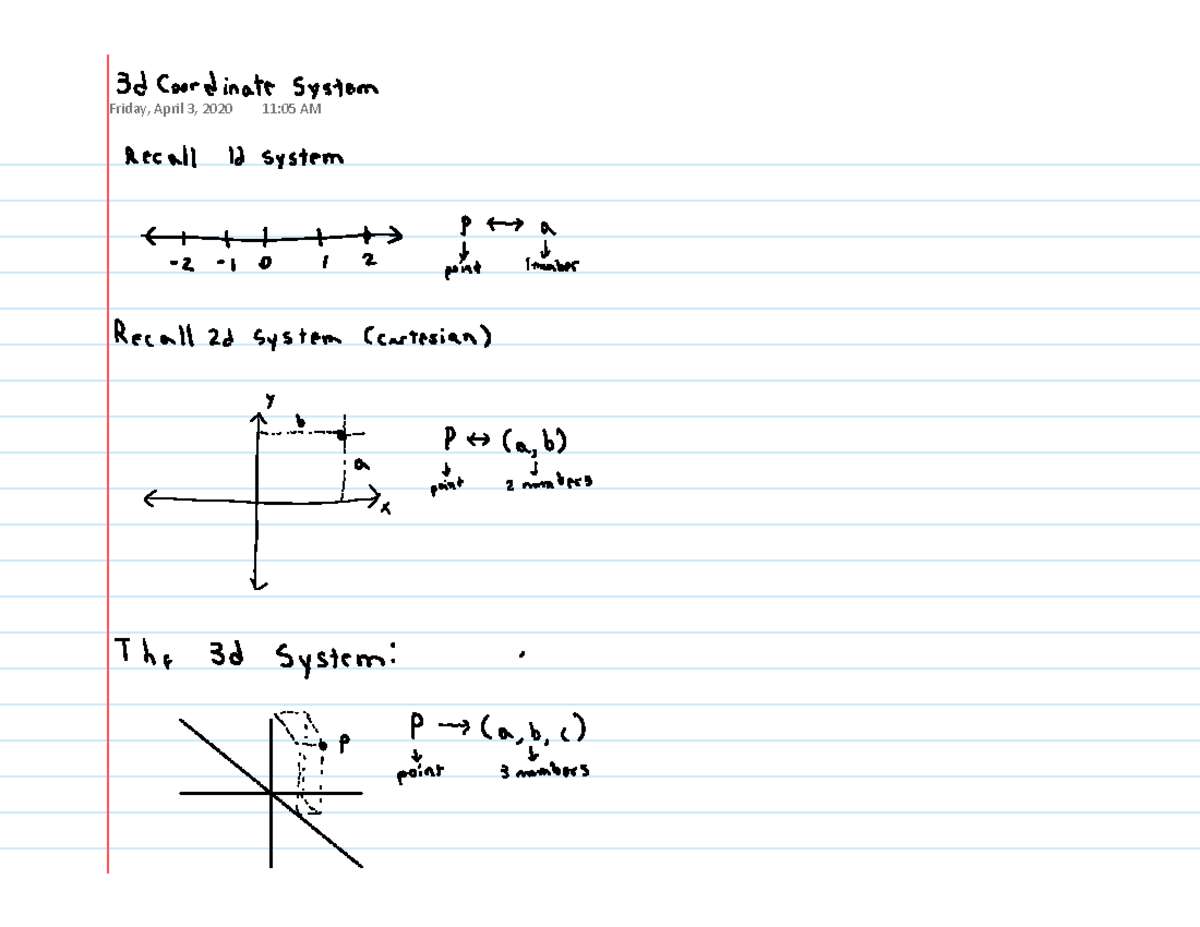 3d Coordinate System
Friday, April 3, 2020 11:05 AM
Recall 1d system
P ↔ a
-2 -1 0 1 2
point 1 number
Recall 2d system (cartesian)
y
b
P ↔ (a, b)
a
point 2 numbers
x
The 3d System:
P → (a, b, c)
P
point 3 numbers